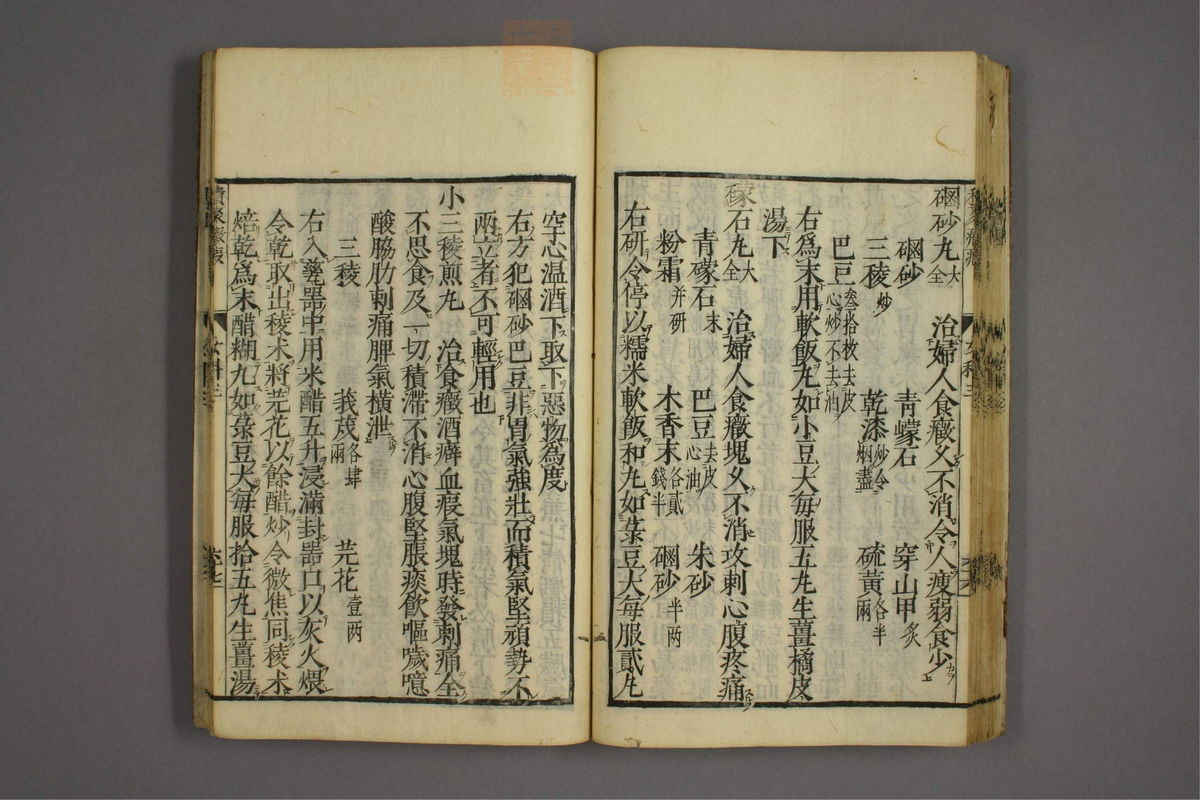 硇砂丸大全　治婦人食癥久不消令人瘦弱食少
硇砂　青礞石　穿山甲炙
三稜炒　乾漆炒令烟盡　硫黃各半兩
巴豆叁拾枚去皮心炒不去油
右為末用軟飯丸如小豆大每服五丸生薑橘皮
湯下
礞石丸大全　治婦人食癥塊久不消攻刺心腹疼痛
青礞石末　巴豆去皮心油　朱砂
粉霜并研　木香末各貳錢半　硇砂半兩
右研令停以糯米軟飯和丸如菉豆大每服貳丸
空心温酒下取下惡物為度
右方犯硇砂巴豆非胃氣強壯而積氣堅頑勢不
兩立者不可輕用也
小三稜煎丸　治食癥酒癖血瘕氣塊時發刺痛全
不思食及一切積滯不消心腹堅脹痰飲嘔噦噫
酸脇肋刺痛脾氣橫泄
三稜　莪茂各肆兩　芫花壹兩
右入甆器中用米醋五升浸滿封器口以灰火煨
令乾取出稜术將芫花以餘醋炒令微焦同稜术
焙乾為末醋糊丸如菉豆大每服拾五丸生薑湯